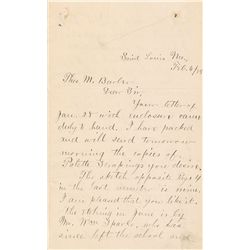 Saint Louis Mo,
Feb. 6/18
Thos. M. Barber
Dear Sir,
Your letter of
Jan. 28 with enclosure came
duly to hand. I have packed
and will send tomorrow
morning the copies of
Palette Scrapings you desire.
The sketch opposite Page 11
in the last number is mine.
I am pleased that you like it.
The etching in June is by
Mr. Wm. who has
since left the school and